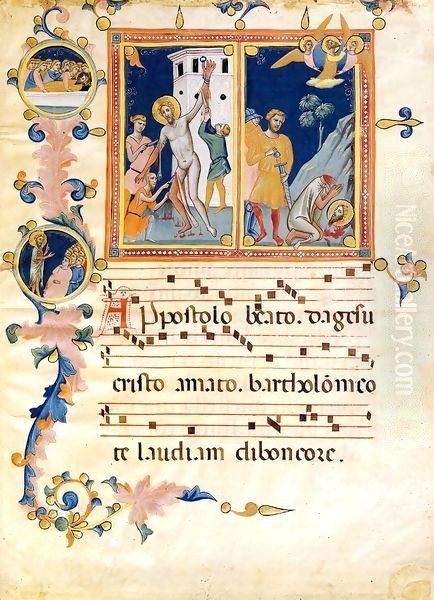 Apostolo beato. dagesu
cristo amato. bartholōmeo
te laudiam diboncore.
NiceArtGallery.com